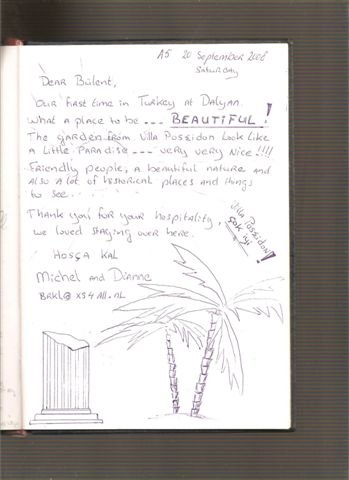 A5 20 September 2008
Saturday
Dear Bülent,
Our first time in Turkey at Dalyan.
What a place to be --- BEAUTIFUL!
The garden from Villa Posseidon look like
a little Paradise --- very very nice!!!!
Friendly people, a beautiful nature and
also a lot of historical places and things
to see.
Thank you for your hospitality,
we loved staging over here.
Villa Posseidon
çok iyi!
Hosça kal
Michel and Dianne
BRKL@XS4All.NL